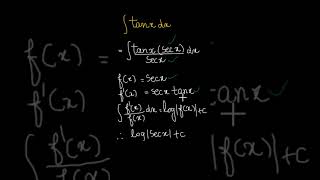 ∫ tanx dx
= ∫ tanx (secx) dx
secx
f(x) = secx
f'(x) = secx tanx
∫ f'(x)/f(x) dx = log|f(x)| + c
∴ log|secx| + c
f(x) =
f'(x)
∫ f'(x)
f(x)
tanx
|f(x)| + c